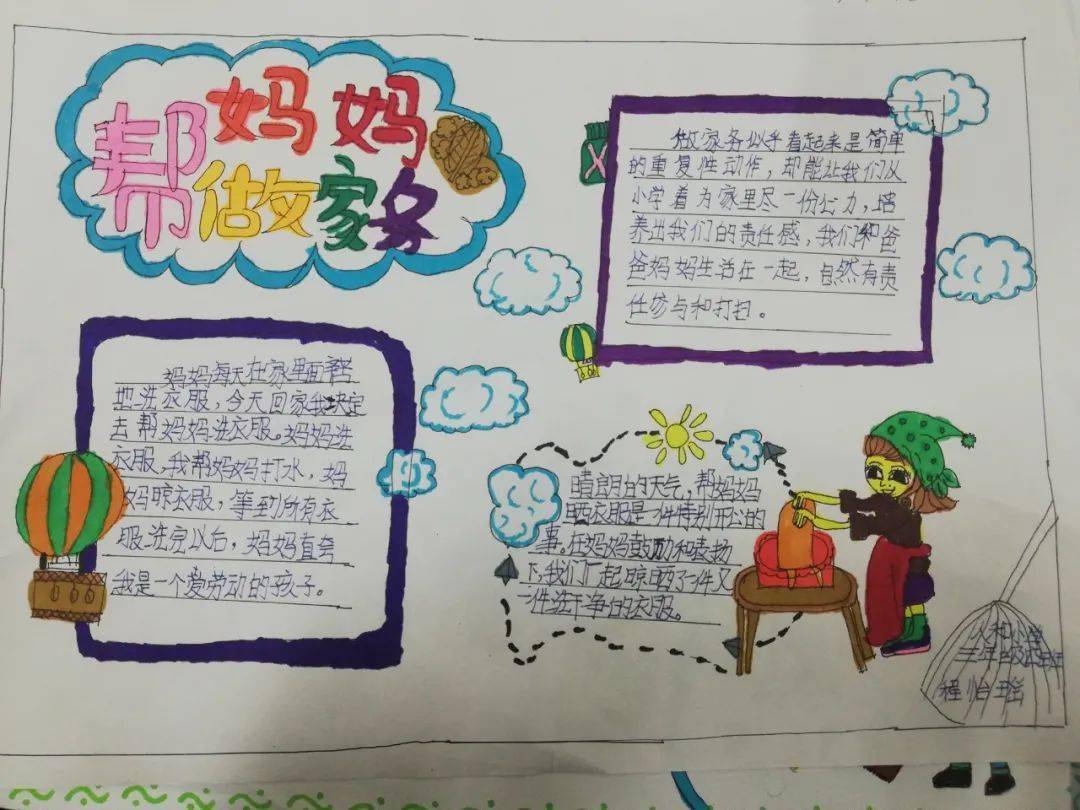 帮妈妈
做家务
做家务似乎看起来是简单
的重复性动作，却能让我们从
小学着为家里尽一份公力，培
养出我们的责任感，我们和爸
爸妈妈生活在一起，自然有责
任参与和打扫。
妈妈每天在家里面辛苦
地洗衣服，今天回家我决定
去帮妈妈洗衣服。妈妈洗
衣服，我帮妈妈打水，妈
妈晾衣服，等到所有衣
服洗完以后，妈妈直夸
我是一个爱劳动的孩子。
晴朗的天气，帮妈妈
晒衣服是一件特别开心的
事。在妈妈鼓励和表扬
下，我们一起晾晒了一件又
一件洗干净的衣服。
人和小学
三年级四班
程怡瑶